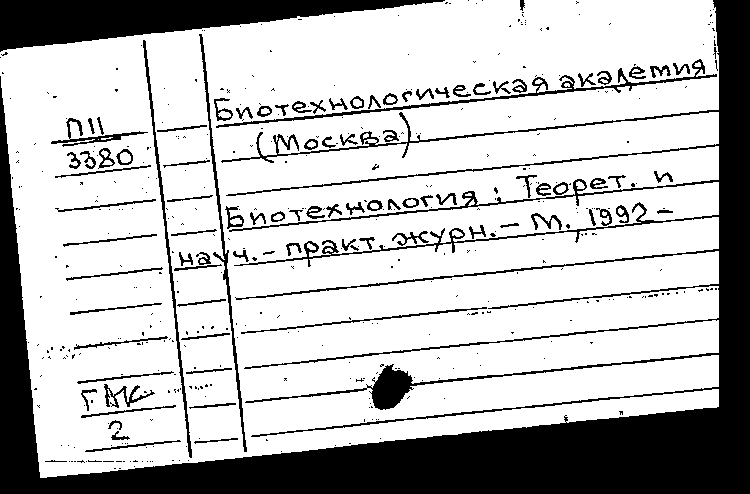 Биотехнологическая академия
П11
(Москва).
3380
Биотехнология : Теорет. и
науч.- практ. журн. - М., 1992 -
ГАК
2